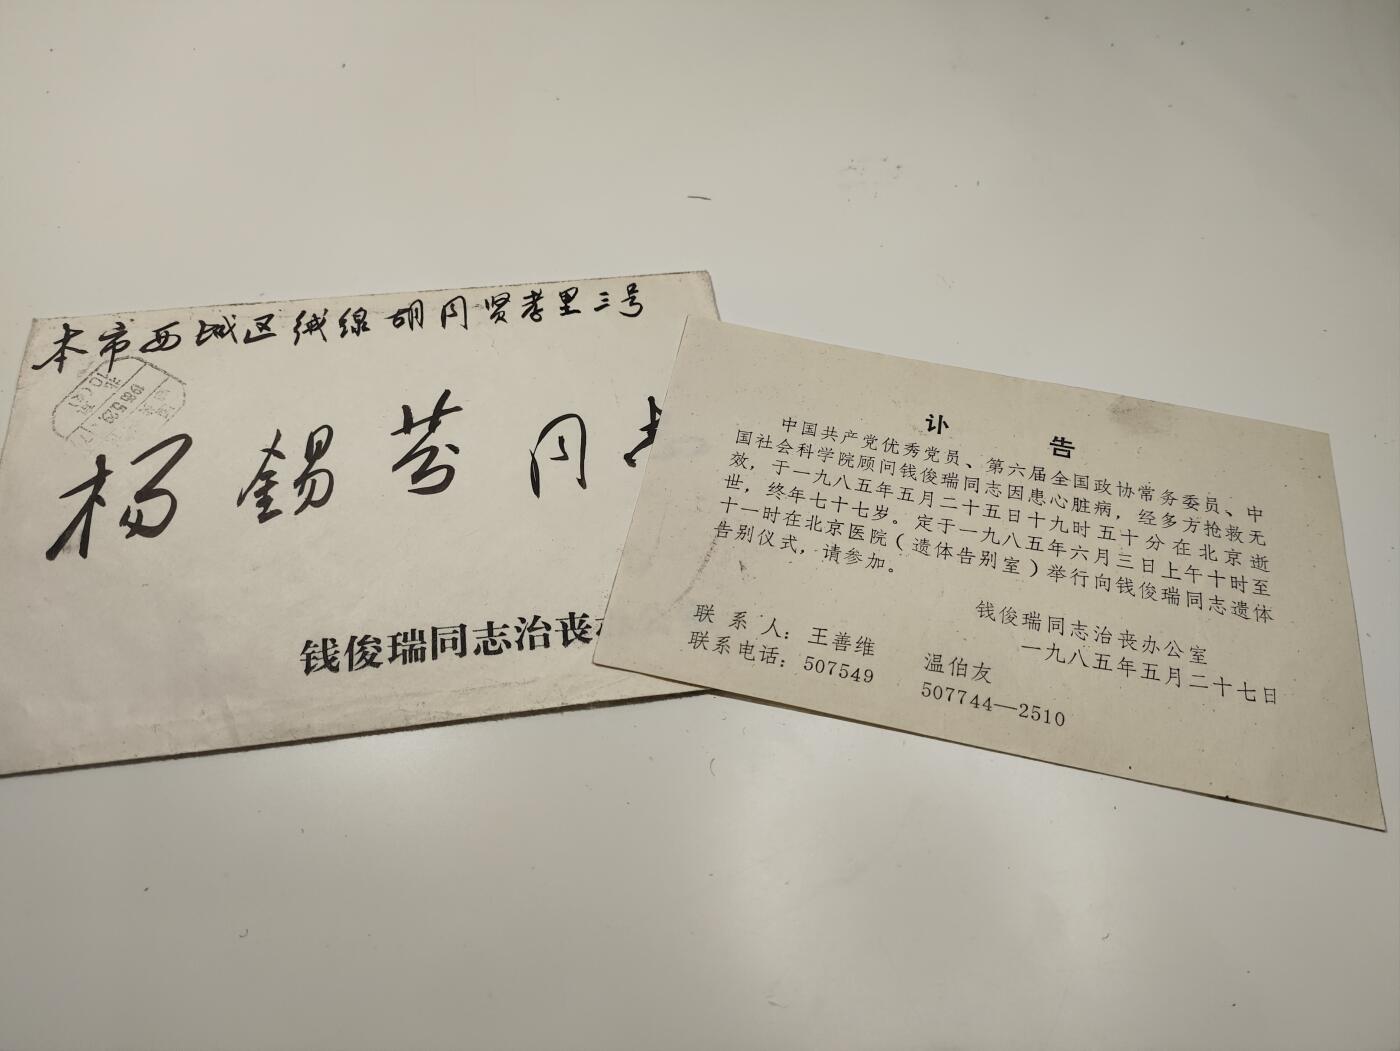 本市西城区绒线胡同贤孝里三号
1985.5.29.17
杨锡芬同志
钱俊瑞同志治丧
讣告
中国共产党优秀党员、第六届全国政协常务委员、中
国社会科学院顾问钱俊瑞同志因患心脏病，经多方抢救无
效，于一九八五年五月二十五日十九时五十分在北京逝
世，终年七十七岁。定于一九八五年六月三日上午十时至
十一时在北京医院（遗体告别室）举行向钱俊瑞同志遗体
告别仪式，请参加。
钱俊瑞同志治丧办公室
一九八五年五月二十七日
联系人：王善维 温伯友
联系电话：507549 507744—2510